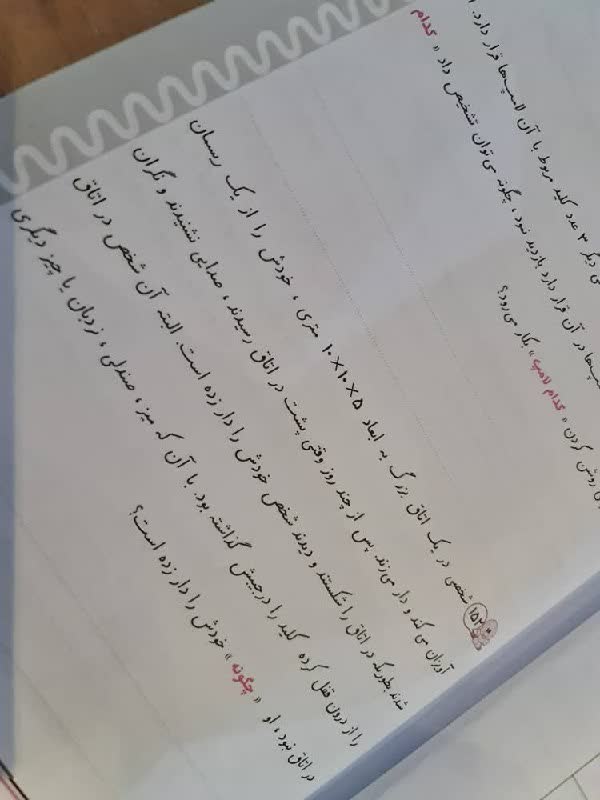 ی دیگر ۳ عدد کلید مربوط با آن لامپ‌ها قرار دارد.
لامپ‌ها در آن قرار دارد بازدید نمود، چگونه می‌توان تشخیص داد « کدام
روشن کردن « کدام لامپ » بکار می‌رود؟
۱۵۲ شخصی در یک اتاق بزرگ به ابعاد ۵×۱۰×۱۰ متری ، خودش را از یک ریسمان
آویزان می کند و دار می‌زند. پس از چند روز وقتی پشت در اتاق رسیدند ، صدایی نشنیدند و نگران
شدند بطوریکه در اتاق را شکستند و دیدند شخص خودش را دار زده است. البته آن شخص در اتاق
را از درون قفل کرده کلید را در جیبش گذاشته بود. با آن که میز ، صندلی ، نردبان یا چیز دیگری
در اتاق نبود ، او « چگونه » خودش را دار زده است؟